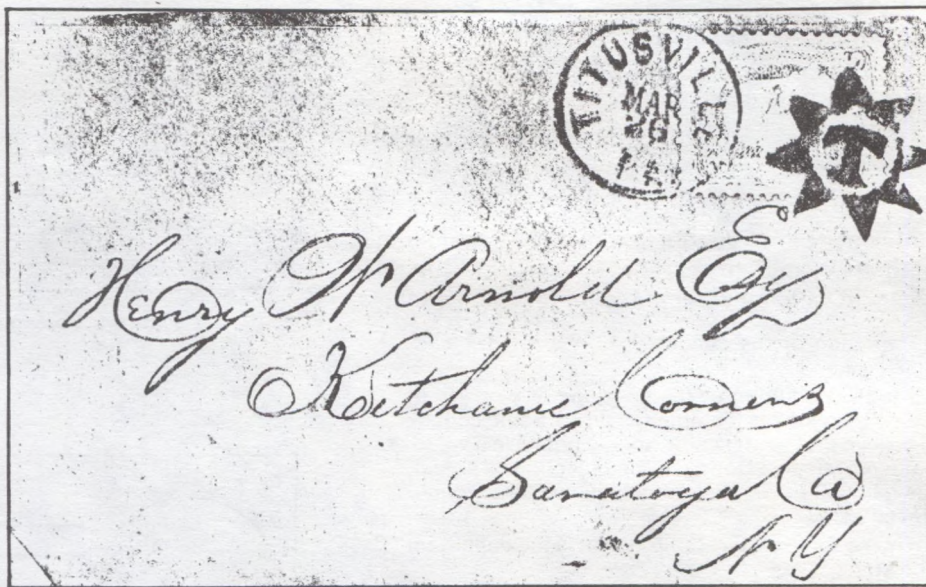 TITUSVILLE
MAR
26
T
Henry W Arnold Esq
Ketchams Corners
Saratoga Co
N Y